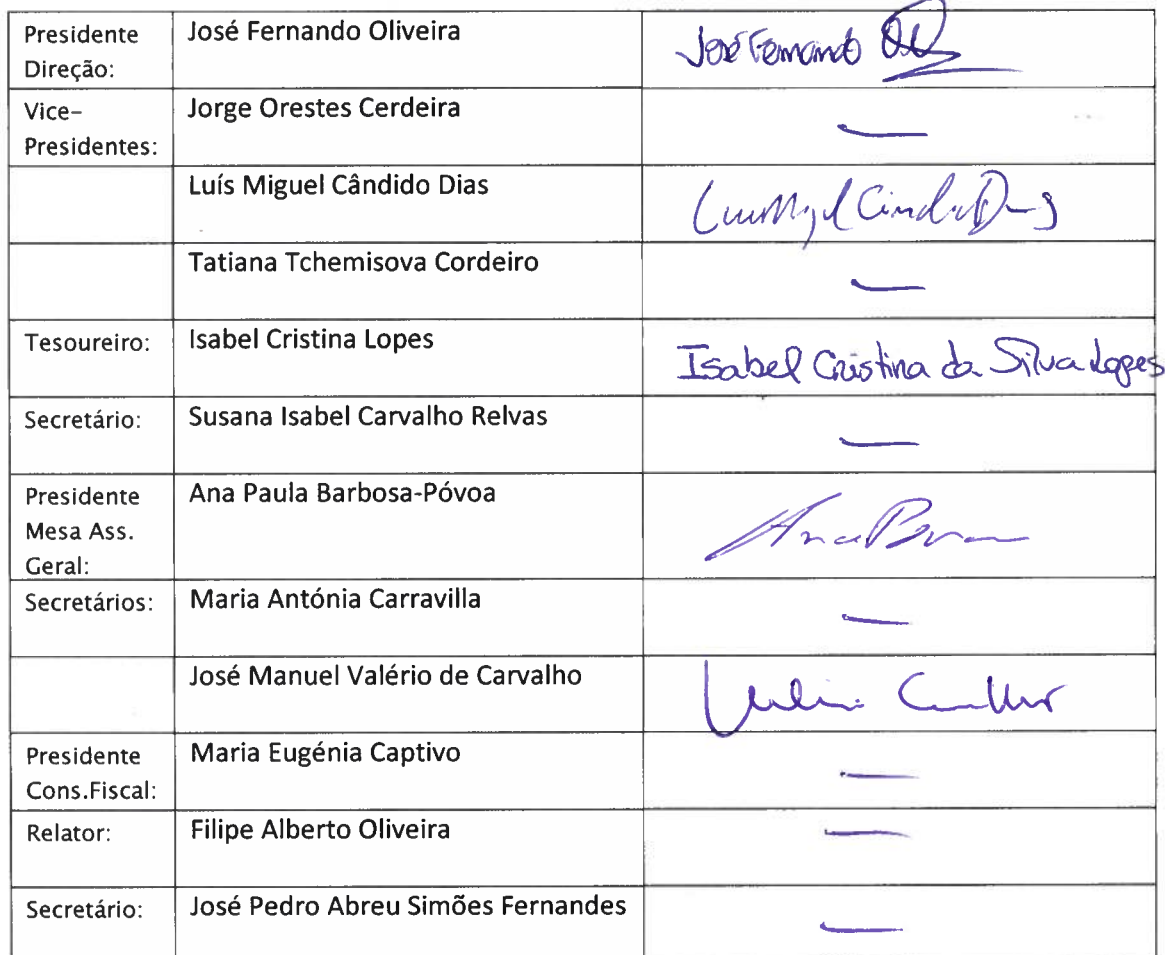 Presidente Direção: José Fernando Oliveira José Fernando
Vice-Presidentes: Jorge Orestes Cerdeira —
Luís Miguel Cândido Dias
Tatiana Tchemisova Cordeiro —
Tesoureiro: Isabel Cristina Lopes Isabel Cristina da Silva Lopes
Secretário: Susana Isabel Carvalho Relvas —
Presidente Mesa Ass. Geral: Ana Paula Barbosa-Póvoa
Secretários: Maria Antónia Carravilla —
José Manuel Valério de Carvalho
Presidente Cons.Fiscal: Maria Eugénia Captivo —
Relator: Filipe Alberto Oliveira —
Secretário: José Pedro Abreu Simões Fernandes —